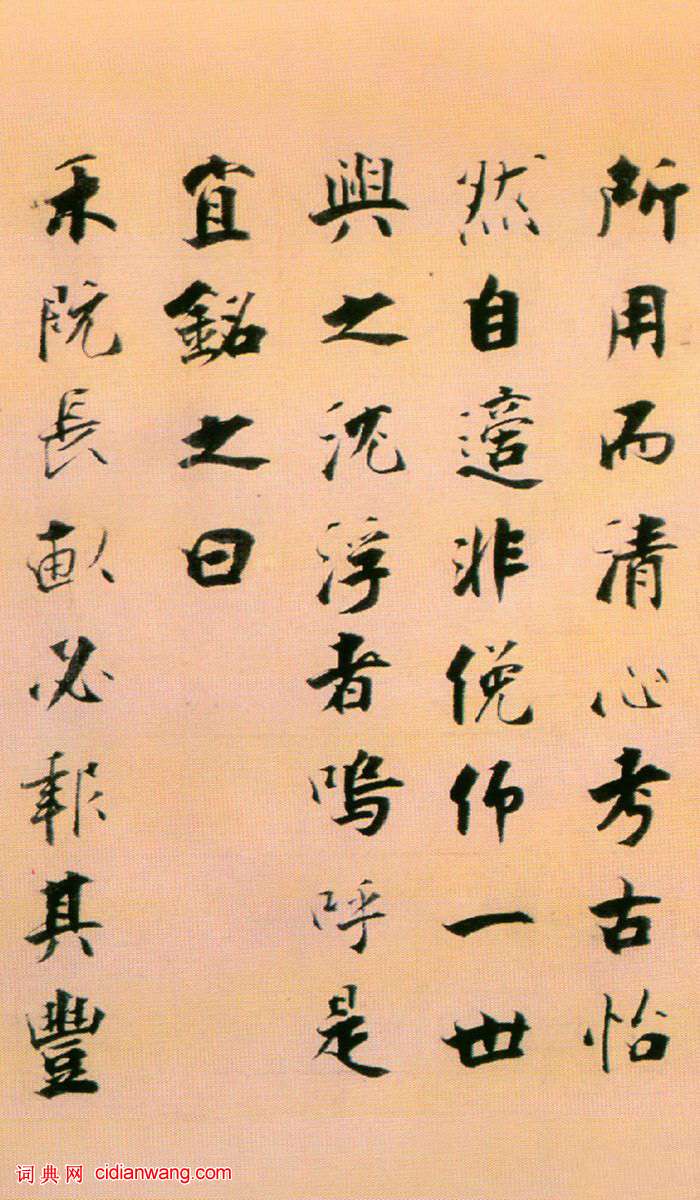 所用而清心考古怡
然自適非俛仰一世
與之沈浮者嗚呼是
宜銘之曰
禾既長畝必報其豐
词典网 cidianwang.com